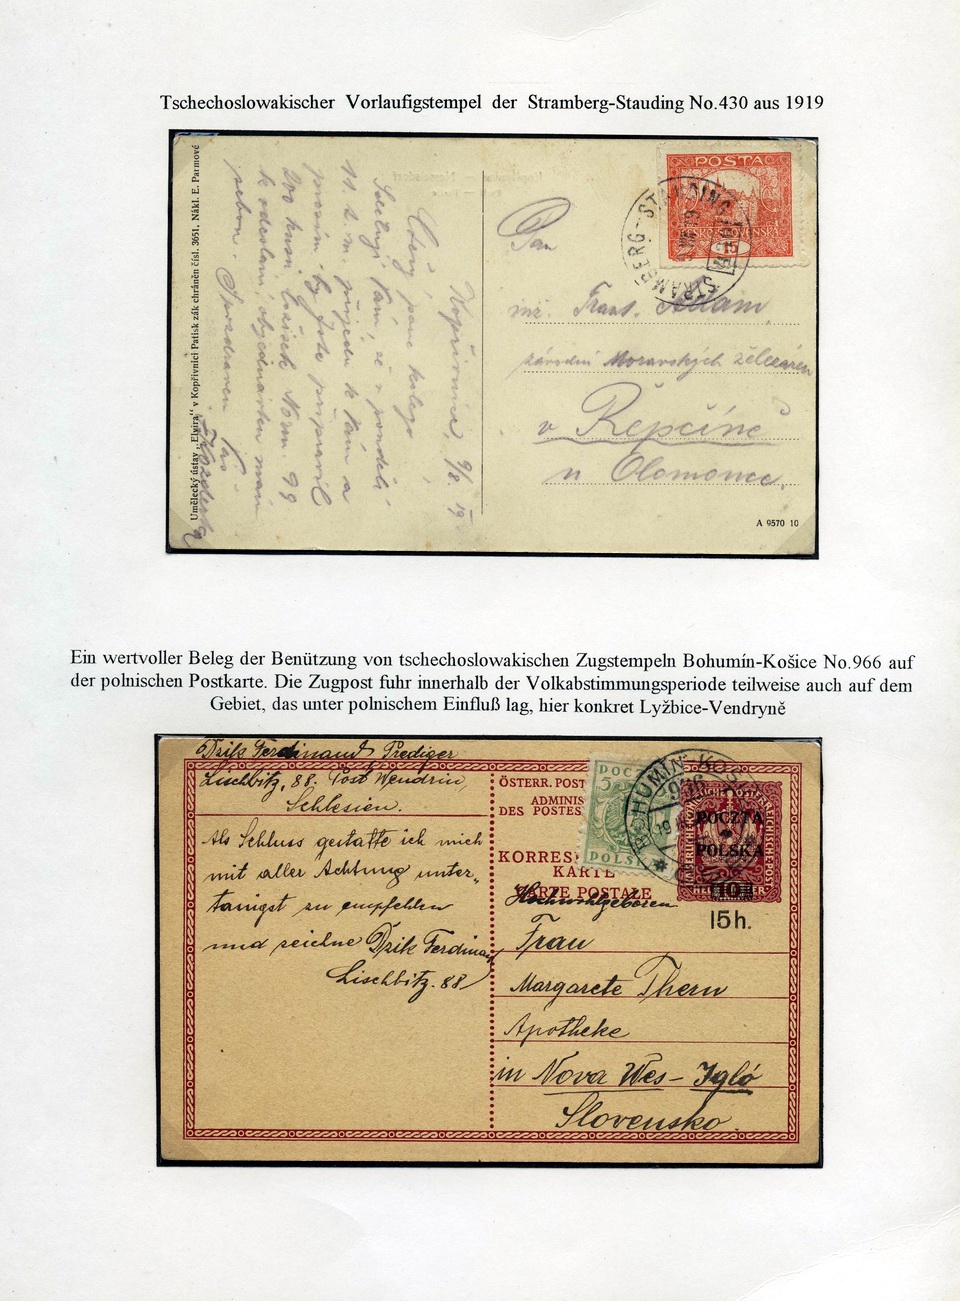 Tschechoslowakischer Vorlaufigstempel der Stramberg-Stauding No.430 aus 1919
Umělecký ústav „Elvíra" v Kopřivnici Patisk zák chráněn čísl. 3651. Nákl. E. Parmové
Kopřivnice, 9/8 19
Vážený pane kolego
Sděluji Vám, že v pondělí
11 t.m. přijedu k Vám a
prosím by jste připravil
200 kusů Norm. 99
k odeslání, objednávku mám
sebou.
Vás
POSTA
STRAMBERG - STAUDING
430
Pan
inž. Frant. Adam,
závodní Moravských železáren
v Řepčíně
u Olomouce.
A 9570 10
Ein wertvoller Beleg der Benützung von tschechoslowakischen Zugstempeln Bohumín-Košice No.966 auf
der polnischen Postkarte. Die Zugpost fuhr innerhalb der Volkabstimmungsperiode teilweise auch auf dem
Gebiet, das unter polnischem Einfluß lag, hier konkret Lyžbice-Vendryně
Dzik Ferdinand, Prediger
Lischbitz, 88. Post Wendrin,
Schlesien.
Als Schluss gestatte ich mich
mit aller Achtung unter-
tänigst zu empfehlen
und zeichne Dzik Ferdinand
Lischbitz. 88
ÖSTERR. POST
ADMINIS
DES POSTES
KORRES
KARTE
CARTE POSTALE
POCZ
5
POLSK
BOHUMÍN - KOŠ
POCZTA
POLSKA
10
15 h.
Hochwohlgeboren
Frau
Margarete Thern
Apotheke
in Nova Wes - Igló
Slovensko.